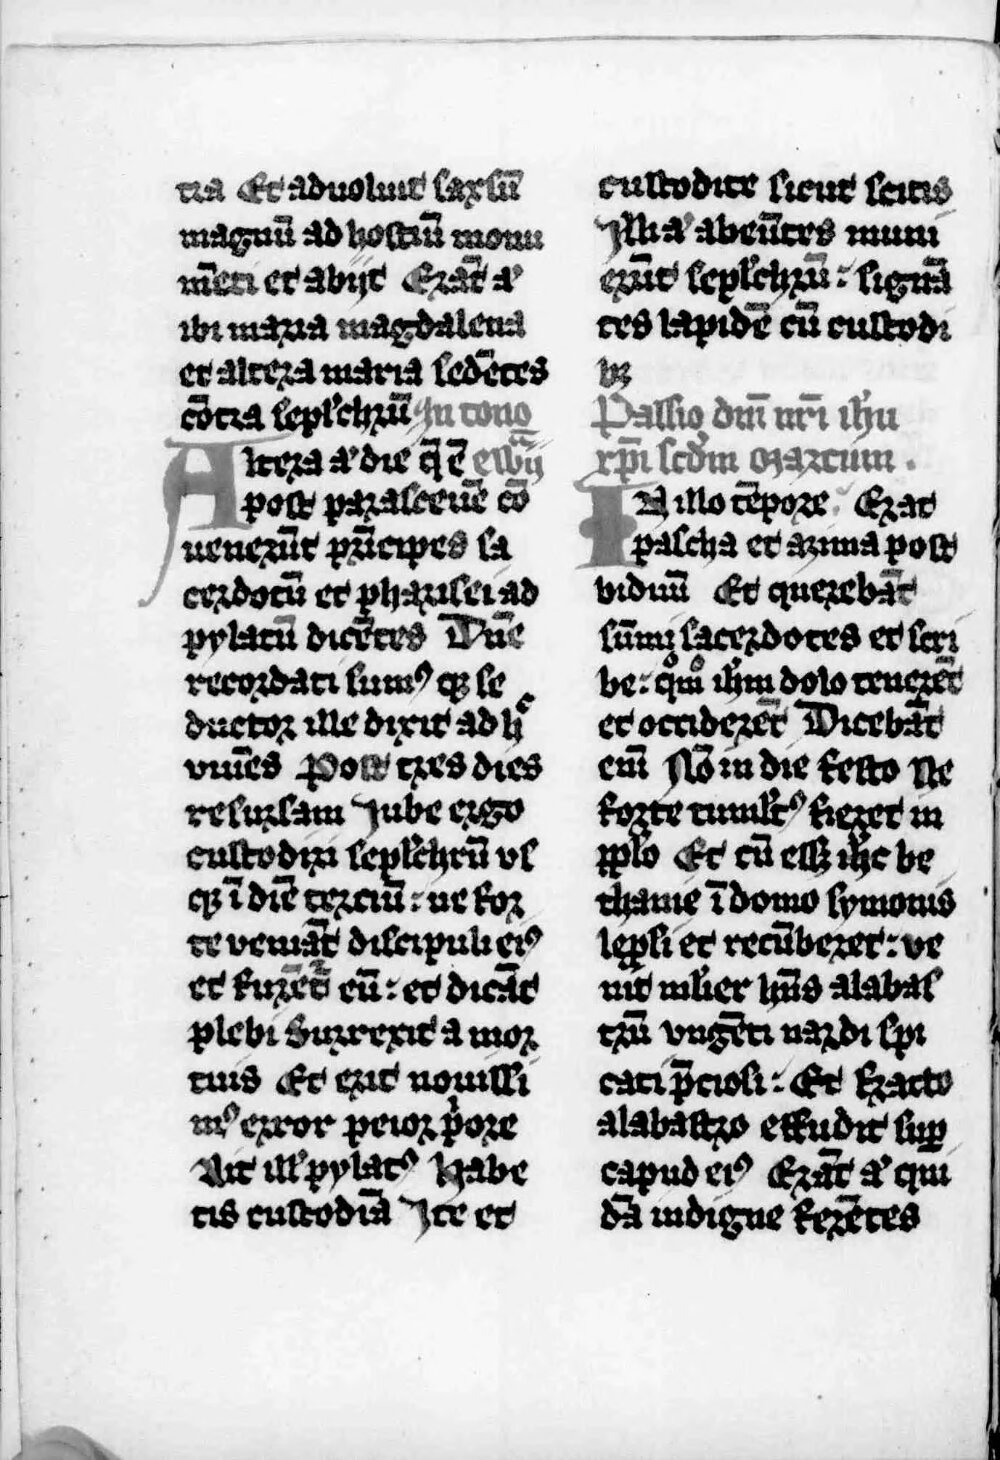 tra Et aduoluit saxsū
magnū ad hostiū monu
mēti et abijt Erāt aͬ
ibi maria magdalena
et altera maria sedētes
cōtra sepl̕chrū In tono
Altera aͬ die q̄ ē ewᷓij
post parasceuē cō
uenerūt prīcipes sa
cerdotū et pharisei ad
pylatū dicētes Dn̄e
recordati sumꝰ qꝫ se
ductor ille dixit ad hͨ
viuēs Post tres dies
resursam Jube ergo
custodiri sepl̕chrū vs
qꝫ ī diē terciū : ne for
te veniāt discipuli eiꝰ
et furēt̄ eū : et dicāt
plebi Surrexit a mor
tuis Et erit nouissi
mꝰ error peior p̓ore
Ait ill̕ pylatꝰ Habe
tis custodiā Ite et
custodite sicut scitis
Illi aͬ abeūtes muni
erūt sepl̕chrū : signā
tes lapidē cū custodi
bꝫ
Passio dn̄i nr̄i ih̕u
xp̄i scd̕m marcum .
In illo tēpore Erat
pascha et azima post
biduū Et querebāt
sūmi sacerdotes et scri
be : qͦmͦ ih̕m dolo tenerēt
et occiderēt Dicebāt
em̄ Nō in die festo Ne
forte tumul̕tꝰ fieret in
ppl̕o Et cū essꝫ ih̕c be
thanie ī domo symonis
lep̱si et recūberet : ve
nit ml̕ier hn̄s alabas
trū vngēti nardi spi
cati p̄ciosi : Et fracto
alabastro effudit suꝑ
capud eiꝰ Erāt aͬ qui
dā indigne ferētes